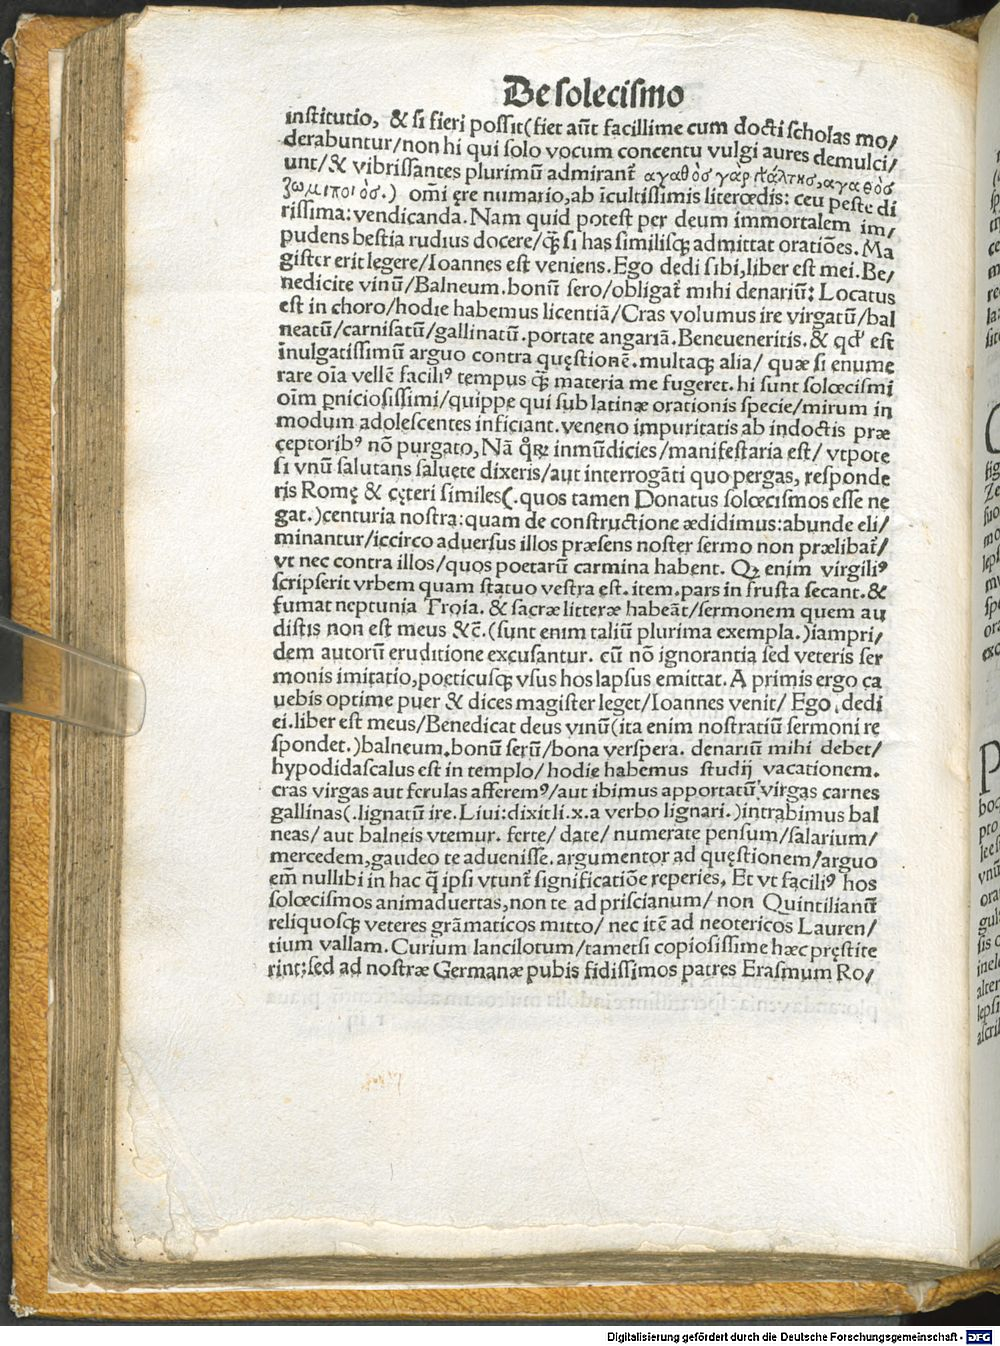 De solecismo
institutio, & si fieri possit (fiet aūt facillime cum docti scholas mo/
derabuntur/non hi qui solo vocum concentu vulgi aures demulci/
unt/& vibrissantes plurimū admirant᷑ αγαθὸσ γὰρ αγαθὸσ
ζωμιποιὸσ.) omī ęre numario, ab īcultissimis literœdis: ceu peste di
rissima: vendicanda. Nam quid potest per deum immortalem im/
pudens bestia rudius docere/q̄ȝ si has similisqȝ admittat oratiōes. Ma
gister erit legere/Ioannes est veniens. Ego dedi sibi, liber est mei. Be/
nedicite vinū/Balneum. bonū sero/obligat᷑ mihi denariū: Locatus
est in choro/hodie habemus licentiā/Cras volumus ire virgatū/bal
neatū/carnisatū/gallinatū. portate angariā. Beneueneritis. & qđ est
inulgatissimū arguo contra quęstionē. multaqȝ alia/ quæ si enume
rare oīa vellē faciliꝰ tempus q̄ȝ materia me fugeret. hi sunt solœcismi
oīm ꝑniciosissimi/quippe qui sub latinæ orationis specie/mirum in
modum adolescentes inficiant. veneno impuritatis ab indoctis præ
ceptoribꝰ nō purgato, Nā qͦꝝ inmūdicies/manifestaria est/ vtpote
si vnū salutans saluete dixeris/aut interrogāti quo pergas, responde
ris Romę & cęteri similes (.quos tamen Donatus solœcismos esse ne
gat.) centuria nostra: quam de constructione ædidimus: abunde eli/
minantur/iccirco aduersus illos præsens noster sermo non prælibat᷑/
vt nec contra illos/quos poetarū carmina habent. Qȝ enim virgiliꝰ
scripserit vrbem quam statuo vestra est. item. pars in frusta secant. &
fumat neptunia Troia. & sacræ litteræ habeāt/sermonem quem au
distis non est meus &c̄. (sunt enim taliū plurima exempla.) iampri/
dem autorū eruditione excusantur. cū nō ignorantia sed veteris ser
monis imitatio, poeticusqȝ vsus hos lapsus emittat. A primis ergo ca
uebis optime puer & dices magister leget/Ioannes venit/ Ego dedi
ei. liber est meus/Benedicat deus vinū (ita enim nostratiū sermoni re
spondet.) balneum. bonū serū/bona verspera. denariū mihi debet/
hypodidascalus est in templo/ hodie habemus studij vacationem.
cras virgas aut ferulas afferemꝰ/aut ibimus apportatū virgas carnes
gallinas (.lignatū ire. Liui: dixit li. x. a verbo lignari.) intrabimus bal
neas/ aut balneis vtemur. ferte/ date/ numerate pensum/salarium/
mercedem, gaudeo te aduenisse. argumentor ad quęstionem/arguo
em̄ nullibi in hac q̄ ipsi vtunt᷑ significatiōe reperies, Et vt faciliꝰ hos
solœcismos animaduertas, non te ad priscianum/ non Quintilianū
reliquosqȝ veteres grāmaticos mitto/ nec itē ad neotericos Lauren/
tium vallam. Curium lancilotum/tametsi copiosissime hæc pręstite
rint: sed ad nostræ Germanæ pubis fidissimos patres Erasmum Ro/
Digitalisierung gefördert durch die Deutsche Forschungsgemeinschaft - DFG